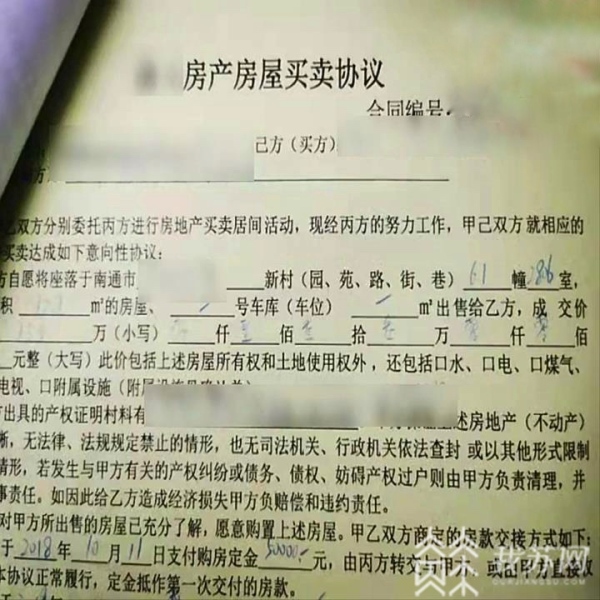 房产房屋买卖协议
合同编号
己方（买方）
方
乙双方分别委托丙方进行房地产买卖居间活动，现经丙方的努力工作，甲己双方就相应的
买卖达成如下意向性协议：
方自愿将座落于南通市 新村（园、苑、路、街、巷）61幢286室，
积 ㎡的房屋、 号车库（车位） ㎡出售给乙方，成交价
万（小写） 仟壹佰叁拾叁万零仟零佰
元整（大写）此价包括上述房屋所有权和土地使用权外，还包括口水、口电、口煤气、
电视、口附属设施（附属设施
方出具的产权证明村料有 上述房地产（不动产）
晰，无法律、法规规定禁止的情形，也无司法机关、行政机关依法查封或以其他形式限制
情形，若发生与甲方有关的产权纠纷或债务、债权、妨碍产权过户则由甲方负责清理，并
事责任。如因此给乙方造成经济损失甲方负赔偿和违约责任。
对甲方所出售的房屋已充分了解，愿意购置上述房屋。甲乙双方商定的房款交接方式如下：
于2018年10月11日支付购房定金50000元，由丙方转交与甲方，或由甲方直接收
本协议正常履行，定金抵作第一次交付的房款。
荔苏网
OURJIANGSU.COM